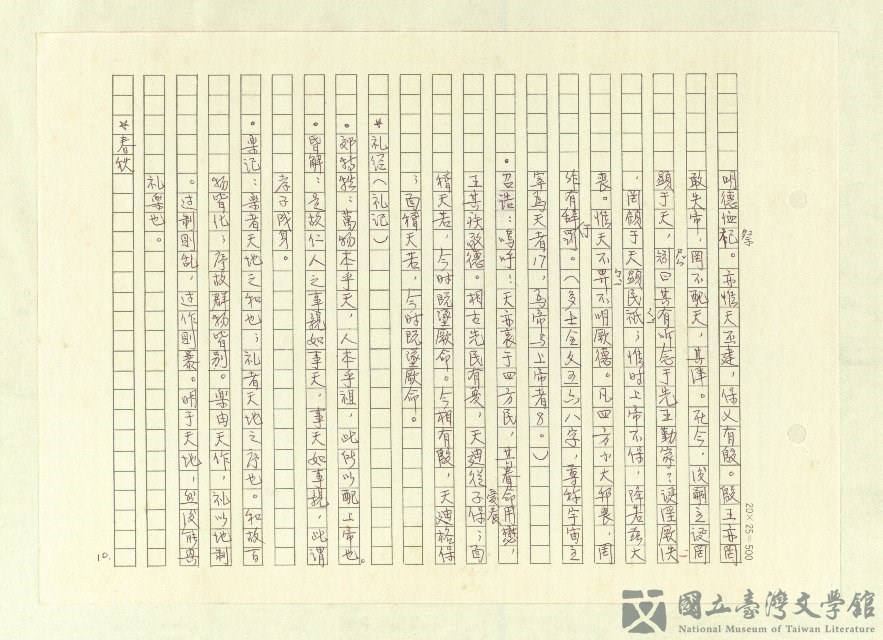 明德恤祀。亦惟天丕建，保乂有殷。殷王亦罔
祭
敢失帝，罔不配天，其澤。在今，後嗣王誕罔
顕于天，矧曰其有听念于先王勤家？誕淫厥泆
，罔顧于天顕民祇；惟时上帝不保，降若茲大
喪。惟天不畀不明厥德。凡四方小大邦喪，罔
非有辞于罰。（多士全文五百八字，尊称宇宙主
宰為天者17，為帝与上帝者8。）
。召诰：嗚呼！天亦哀于四方民，其眷命用懋，
眷
王其疾敬德。相古先民有夏，天迪從子保；面
稽天若，今时既墜厥命。今相有殷，天迪格保
；面稽天若，今时既墜厥命。
*礼经（礼记）
。郊特牲：萬物本乎天，人本乎祖，此所以配上帝也。
。皆解：是故仁人之事親如事天，事天如事親，此谓
孝子成身。
。樂记：樂者天地之和也；礼者天地之序也。和故百
物皆化；序故群物皆别。樂由天作，礼以地制
。过制則乱，过作則暴。明于天地，然後能興
礼樂也。
*春秋
10.
20×25=500
國立臺灣文學館
National Museum of Taiwan Literature